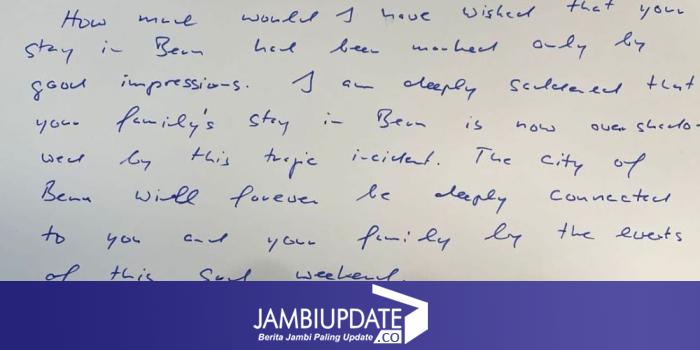 How much would I have wished that your
stay in Bern had been marked only by
good impressions. I am deeply saddened that
your family's stay in Bern is now oversha­do-
wed by this tragic incident. The City of
Bern will forever be deeply connected
to you and your family by the events
of this sad weekend.
JAMBIUPDATE
.CO
Berita Jambi Paling Update